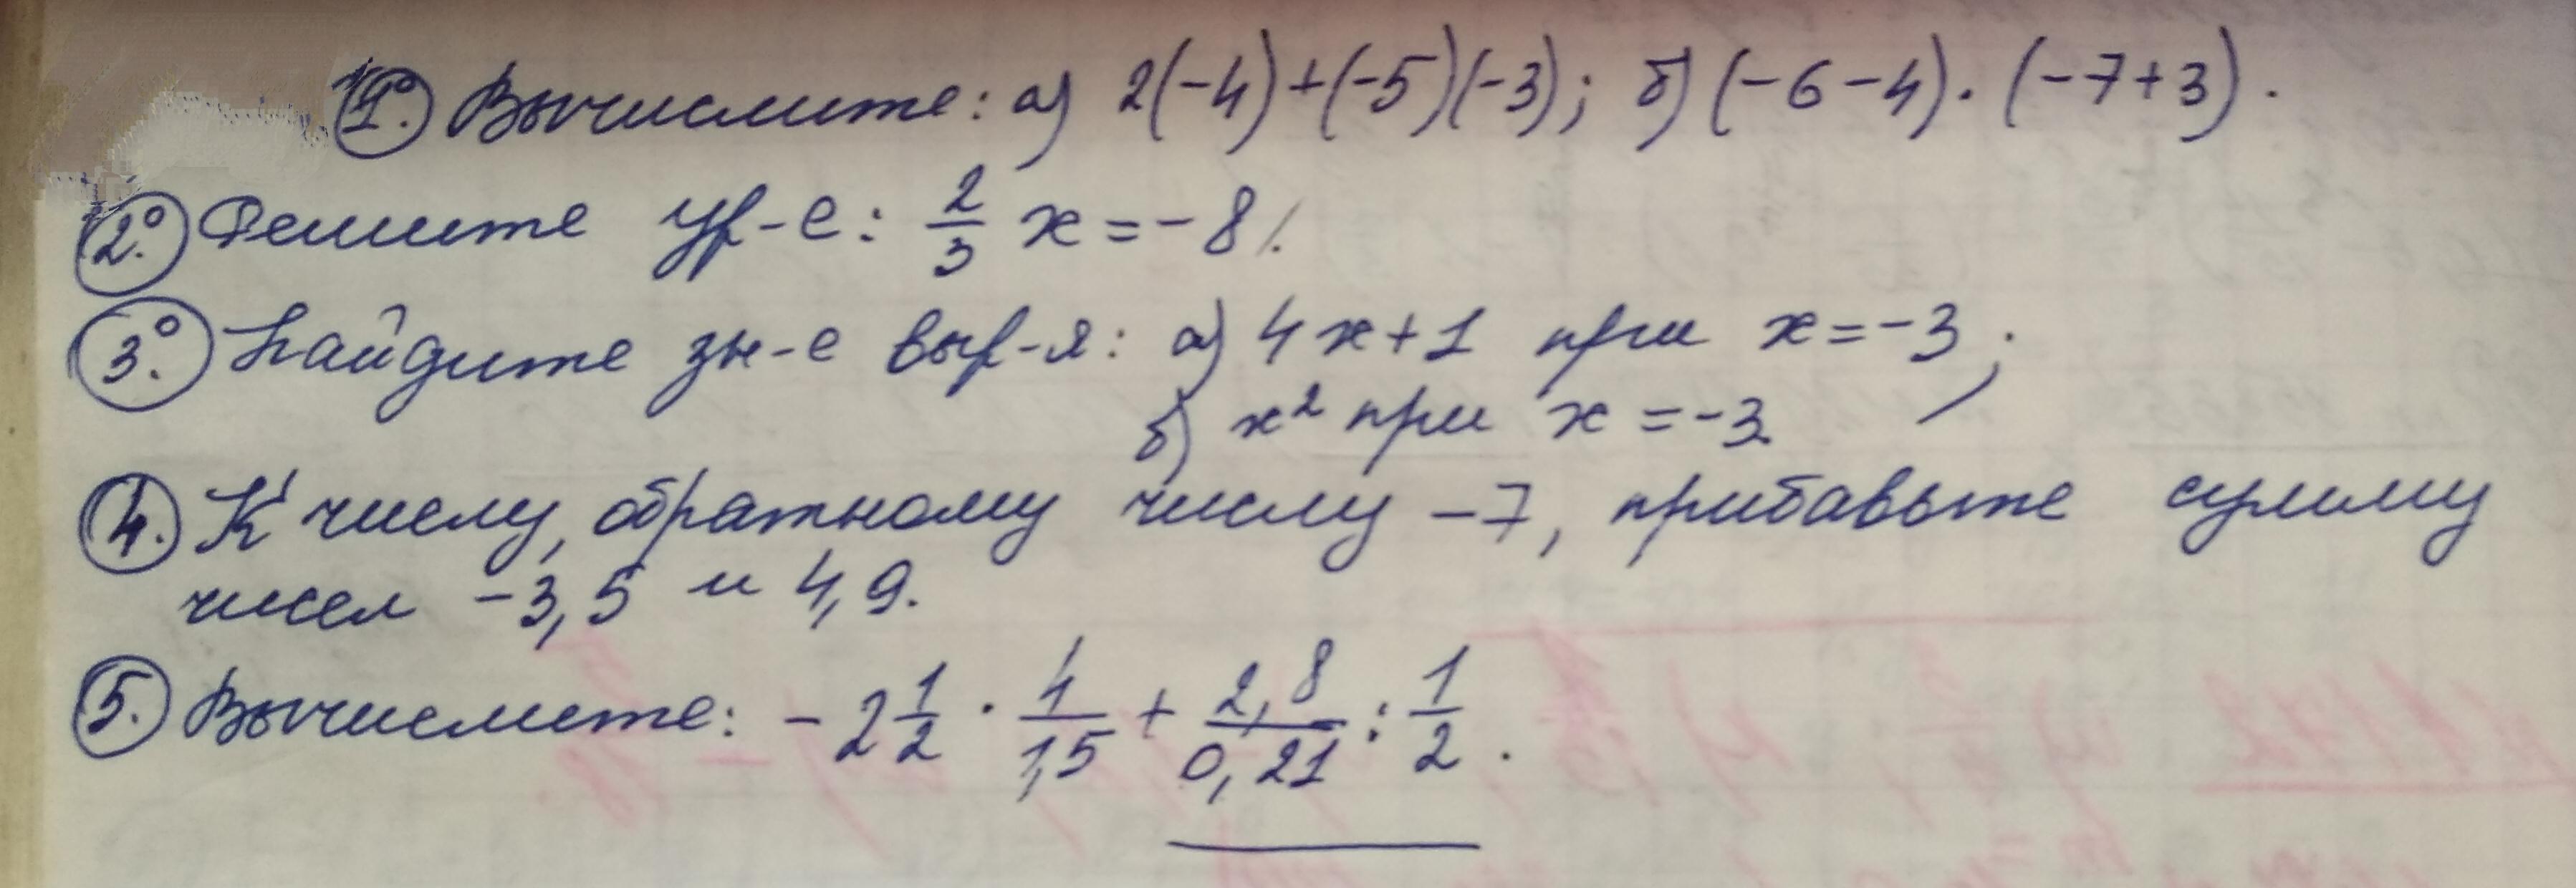 1°. Вычислите: а) 2(-4)+(-5)(-3); б) (-6-4)·(-7+3).
2°. Решите ур-е: 2/3 x = -8.
3°. Найдите зн-е выр-я: а) 4x+1 при x=-3;
б) x² при x=-3.
4. К числу, обратному числу -7, прибавьте сумму
чисел -3,5 и 4,9.
5. Вычислите: -2 1/2 · 4/1,5 + 2,8/0,21 : 1/2.